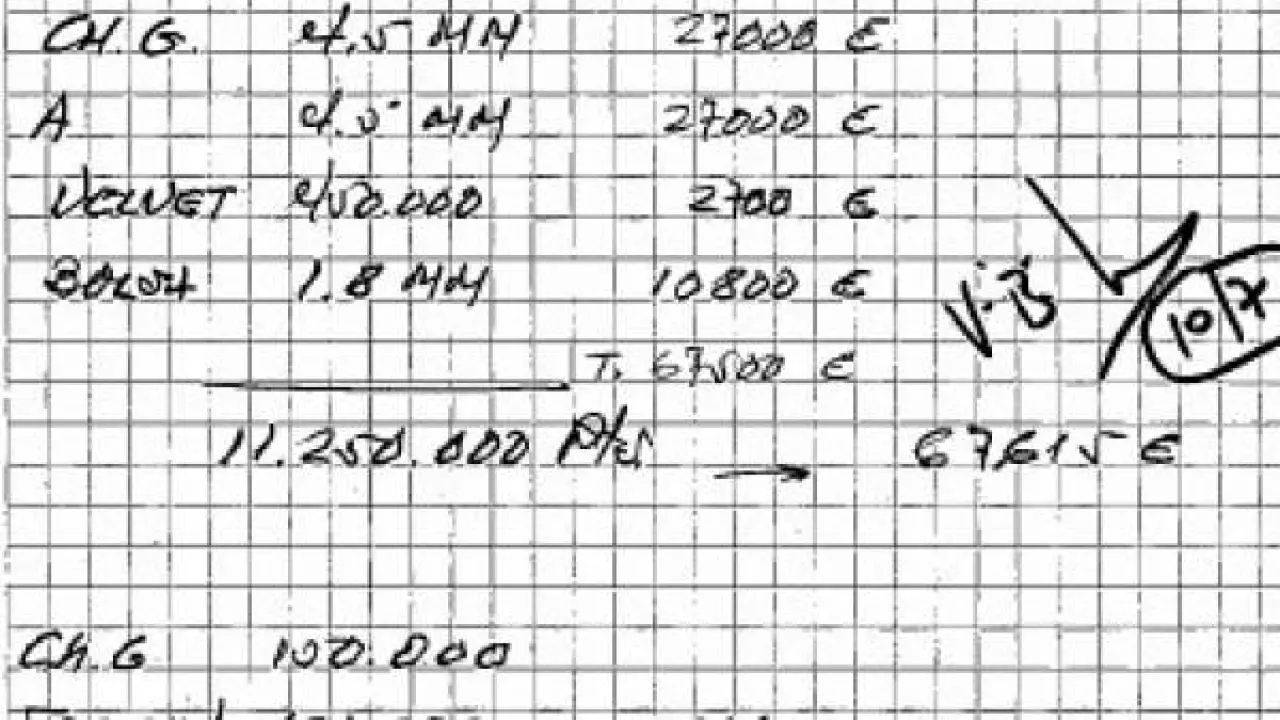 CH.G. 4.5 MM 27000 €
A 4.5 MM 27000 €
VELVET 450.000 2700 €
1.8 MM 10800 €
T. 67500 €
11.250.000 67,615 €
V.B
10/X
CH.G 100.000